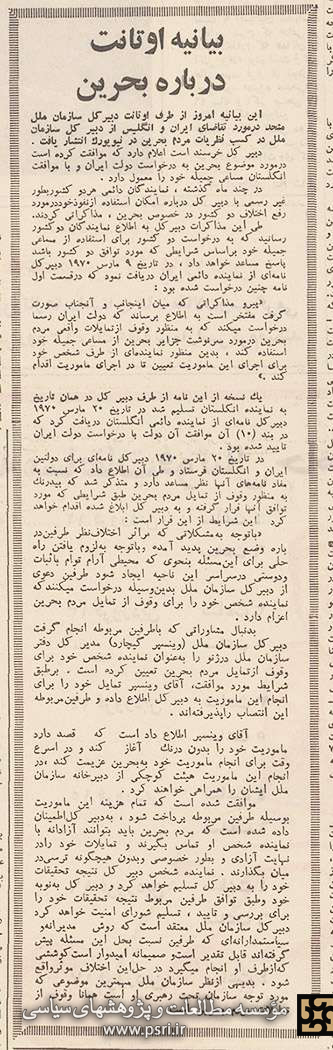 بیانیه اوتانت
درباره بحرین
این بیانیه امروز از طرف اوتانت دبیرکل سازمان ملل
متحد درمورد تقاضای ایران و انگلیس از دبیر کل سازمان
ملل در کسب نظریات مردم بحرین در نیویورک انتشار یافت .
دبیر کل خرسند است اعلام دارد که موافقت کرده است
درمورد موضوع بحرین به درخواست دولت ایران و با موافقت
انگلستان مساعی جمیله خود را معمول دارد .
در چند ماه گذشته ، نمایندگان دائمی هردو کشوربطور
غیر رسمی با دبیر کل درباره امکان استفاده ازنفوذخوددرمورد
رفع اختلاف دو کشور در خصوص بحرین ، مذاکراتی کردند.
طی این مذاکرات دبیر کل به اطلاع نمایندگان دوکشور
رسانید که به درخواست دو کشور برای استفاده از مساعی
جمیله خود براساس شرایطی که مورد توافق دو کشور باشد
پاسخ مساعد خواهد داد ، در تاریخ ۹ مارس ۱۹۷۰ دبیرکل
نامه‌ای از نماینده دائمی ایران دریافت نمود که درقسمت اول
نامه چنین درخواست شده بود :
«پیرو مذاکراتی که میان اینجانب و آنجناب صورت
گرفت مفتخر است به اطلاع برساند که دولت ایران رسما
درخواست میکند که به منظور وقوف ازتمایلات واقعی مردم
بحرین درمورد سرنوشت جزایر بحرین از مساعی جمیله خود
استفاده کند ، بدین منظور نماینده‌ای از طرف شخص خود
برای اجرای این ماموریت تعیین تا در اجرای ماموریت اقدام
کند .»
یك نسخه از این نامه از طرف دبیر کل در همان تاریخ
به نماینده انگلستان تسلیم شد در تاریخ ۲۰ مارس ۱۹۷۰
دبیرکل نامه‌ای از نماینده دائمی انگلستان دریافت کرد که
در بند (۱۰) آن موافقت آن دولت با درخواست دولت ایران
تایید شده بود .
در تاریخ ۲۰ مارس ۱۹۷۰ دبیر کل نامه‌ای برای دولتین
ایران و انگلستان فرستاد و طی آن اطلاع داد که نسبت به
مفاد نامه‌های آنها نظر مساعد دارد و متذکر شد که بیدرنك
به منظور وقوف از تمایل مردم بحرین طبق شرایطی که مورد
توافق آنها قرار گرفته و به دبیر کل ابلاغ شده اقدام خواهد
کرد این شرایط از این قرار است :
«باتوجه به‌مشکلاتی که براثر اختلاف‌نظر طرفین‌در
باره وضع بحرین پدید آمده وباتوجه به‌لزوم یافتن راه
حلی برای این‌مسئله بنحوی که محیطی آرام توام باثبات
ودوستی درسراسر این ناحیه ایجاد شود طرفین دعوی
از دبیر کل سازمان ملل بدین‌وسیله درخواست میکنندکه
نماینده شخص خود را برای وقوف از تمایل مردم بحرین
اعزام دارد .
بدنبال مشاوراتی که باطرفین مربوطه انجام گرفت
دبیر کل سازمان ملل (وینسپر گیچارد) مدیر کل دفتر
سازمان ملل درژنو را به‌عنوان نماینده شخص خود برای
وقوف ازتمایل مردم بحرین تعیین کرده است . برطبق
شرایط مورد موافقت، آقای وینسپر تمایل خود را برای
انجام این ماموریت به دبیر کل اطلاع داده و طرفین‌مربوطه
این انتصاب راپذیرفته‌اند .
آقای وینسپر اطلاع داد است که قصد دارد
ماموریت خود را بدون درنك آغاز کند و در اسرع
وقت برای انجام ماموریت خود به‌بحرین عزیمت کند ،در
انجام این ماموریت هیئت کوچکی از دبیرخانه سازمان
ملل ایشان را همراهی خواهند کرد .
موافقت شده است که تمام هزینه این ماموریت
بوسیله طرفین مربوطه پرداخت شود ، به‌دبیر کل‌اطمینان
داده شده است که مردم بحرین باید بتوانند آزادانه با
نماینده شخص او تماس بگیرند و تمایلات خود رادر
نهایت آزادی و بطور خصوصی وبدون هیچگونه ترسی‌در
میان بگذارند . نماینده شخص دبیر کل نتیجه تحقیقات
خود را به دبیر کل تسلیم خواهد کرد و دبیر کل به‌نوبه
خود وطبق توافق طرفین مربوط نتیجه تحقیقات خود را
برای بررسی و تایید ، تسلیم شورای امنیت خواهد کرد
دبیر کل سازمان ملل معتقد است که روش مدبرانه‌و
سیاستمدارانه‌ای که طرفین نسبت بحل این مسئله پیش
گرفته‌اند قابل تقدیر است‌و صمیمانه امیدوار است‌کوششی
که‌ازطرف او انجام میگیرد در حل‌این اختلاف موثرواقع
شود . بدیهی ازنظر سازمان ملل مهمترین موضوعی که
مورد توجه سازمان تحت رهبری او است همانا وقوف از
موسسه مطالعات و پژوهشهای سیاسی
www.psri.ir